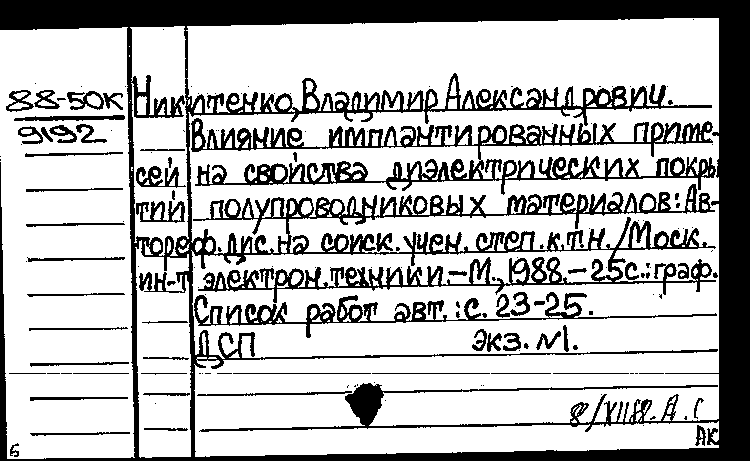 88-50К Никитенко, Владимир Александрович.
9192 Влияние имплантированных приме-
сей на свойства диэлектрических покры
тий полупроводниковых материалов: Ав-
тореф. дис. на соиск. учен. степ. к.т.н. / Моск.
ин-т электрон. техники. – М., 1988. – 25с.: граф.
Список работ авт.: с. 23-25.
ДСП экз. №1.
8/XII88. А. С
АК
6